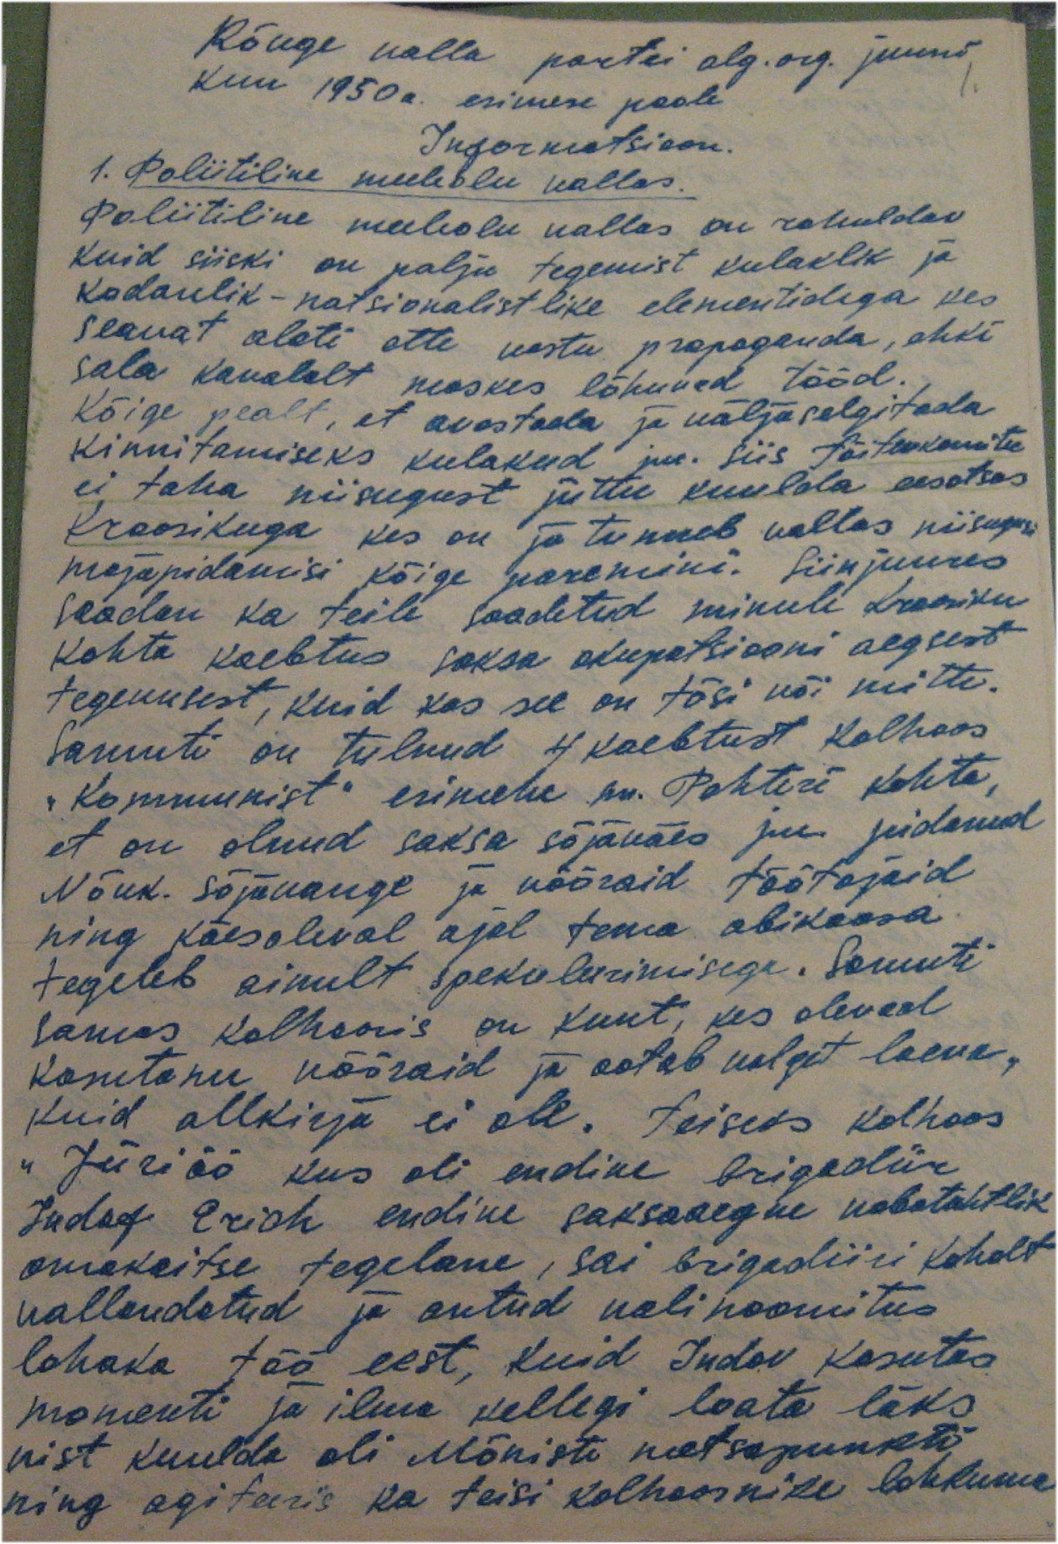 Rõuge valla partei alg. org. juuni
1.
kuu 1950 a. esimese poole
Informatsioon.
1. Poliitiline meeleolu vallas.
Poliitiline meeleolu vallas on rahuldav
kuid siiski on palju tegemist kulaklik ja
kodanlik-natsionalistlike elementidega kes
seavat alati ette vastu propaganda, ehki
sala kavalalt maskes lõhuvad tööd.
Kõige pealt, et avastada ja väljaselgitada
kinnitamiseks kulakud jne. siis Täitevkomitee
ei taha niisugust juttu kuulda eesotsas
Kroosikuga kes on ja tunneb vallas niisugusi
majapidamisi kõige paremini. Siinjuures
saadan ka teile saadetud minule Kroosiku
kohta kaebtus saksa okupatsiooni aegsest
tegevusest, kuid kas see on tõsi või mitte.
Samuti on tulnud 4 kaebtust kolhoos
"Kommunist" esimehe sm. Pähteri kohta,
et on olnud saksa sõjaväes jne pidanud
Nõuk. sõjavange ja vööraid töötajaid
ning käesoleval ajal tema abikaasa
tegeleb ainult spekuleerimisega. Samuti
samas kolhoosis on Kunt, kes olevad
kasutanu vööraid ja ootab valget laeva,
kuid allkirja ei ole. Teiseks kolhoos
"Jüriöö kus oli endine brigadiir
Indof Erich endine saksaaegne vabatahtlik
omakaitse tegelane, sai brigadiiri kohalt
vallandatud ja antud valinoomitus
lohaka töö eest, kuid Indov kasutas
momenti ja ilma kellegi loata läks
vist kuulda oli Mõniste metsapunkti
ning agiteeris ka teisi kolhoosnike lahkuma